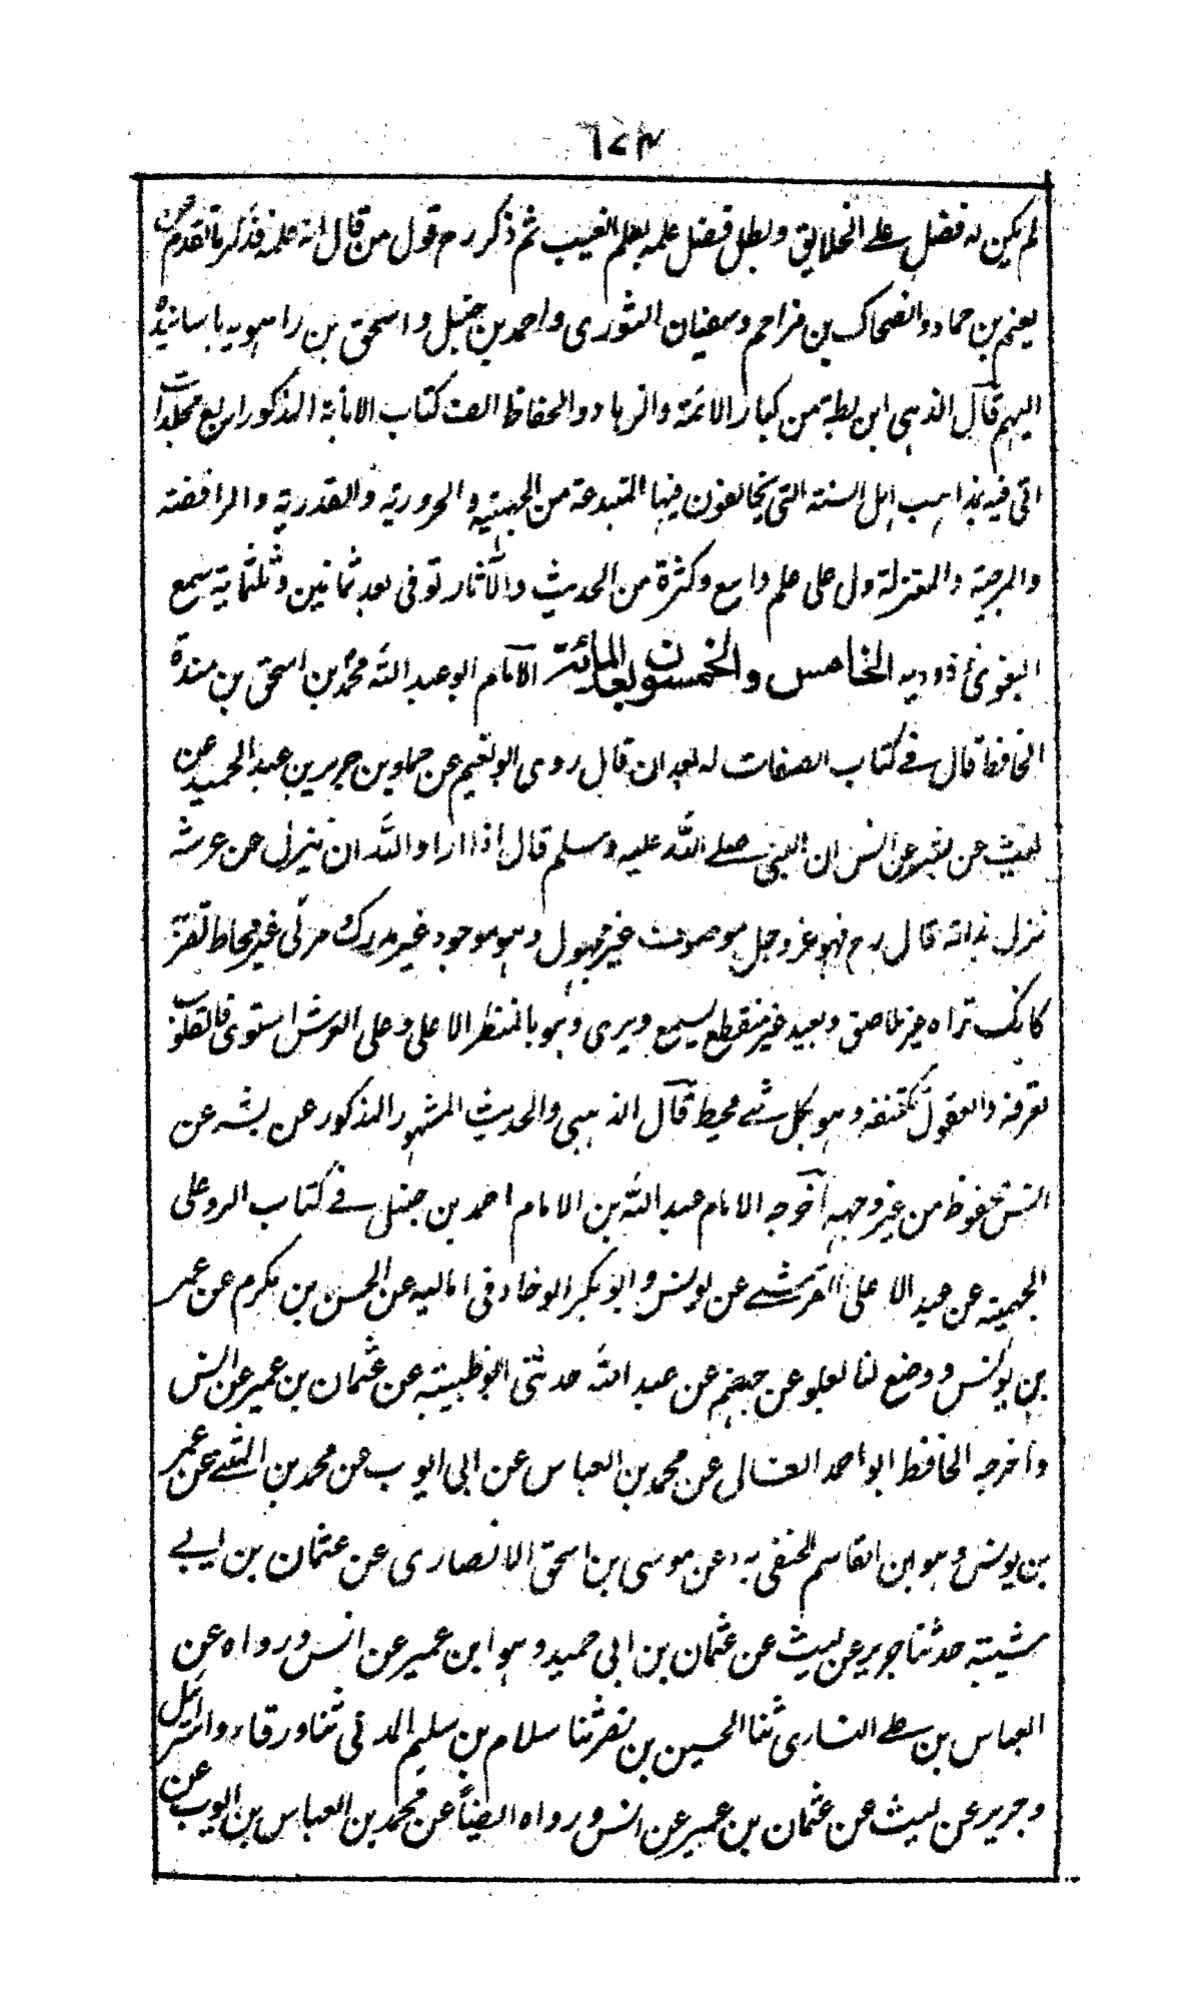 ٦٧٣
لم يكن له فضل على الخلايق وبطل فضل علمه بعلم الغيب ثم ذكر رح قول من قال انه علمه فذكر ما تقدم عن
نعيم بن حماد والضحاك بن مزاحم وسفيان الثوري واحمد بن حنبل واسحق بن راهويه باسانيده
اليهم قال الذهبي ابن بطة من كبار الائمة والزهاد والحفاظ الف كتاب الابانة المذكور اربع مجلدات
اتى فيه بمذاهب اهل السنة التى يخالفون فيها المبتدعة من الجهمية والحرورية والقدرية والرافضة
والمرجية والمعتزلة ول على علم واسع وكثرة من الحديث والآثار توفى بعد ثمانين وثلثماية سمع
البغوى وذويه الخامس والخمسون بعد المائة الآمام ابو عبد الله محمد بن اسحق بن مندة
الحافظ قال في كتاب الصفات له بعد ان قال روى ابو نعيم عن حماد بن جرير بن عبد الحميد عن
ليث عن بشر عن انس ان النبى صلى الله عليه وسلم قال اذا اراد الله ان ينزل عن عرشه
نزل بذاته قال رح فهو عز وجل موصوف غير مجهول وهو موجود غير مدرك ومرئى غير محاط لقربه
كانك تراه غير ملاصق وبعيد غير منقطع يسمع ويرى وهو بالمنظر الاعلى وعلى العرش استوى فالقلوب
تعرفه والعقول تكتنفه وهو بكل شئ محيط قال الذهبى والحديث المشهور المذكور عن بشر عن
انس محفوظ من غير وجهه آخرجه الامام عبد الله بن الامام احمد بن حنبل في كتاب الرد على
الجهمية عن عبد الاعلى القرشى عن يونس وابو بكر الوخاد فى اماليه عن الحسن بن مكرم عن عمر
بن يونس ووضع لنا بعلو عن جهضم عن عبد الله حدثنى ابو ظبية عن عثمان بن عمير عن انس
واخرجه الحافظ ابو احمد العسال عن محمد بن العباس عن ابى ايوب عن محمد بن المثنى عن عمر
بن يونس وهو ابن القاسم الحنفى به وعن موسى بن اسحق الانصارى عن عثمان بن ابى
شيبة حدثنا جرير عن ليث عن عثمان بن ابى حميد وهو ابن عمير عن انس ورواه عن
العباس بن على النسارى ثنا الحسين بن نصر ثنا سلام بن سليم المدنى ثنا ورقاء واسرائيل
وجرير عن ليث عن عثمان بن عمير عن انس ورواه ايضاً عن محمد بن العباس بن ايوب عن